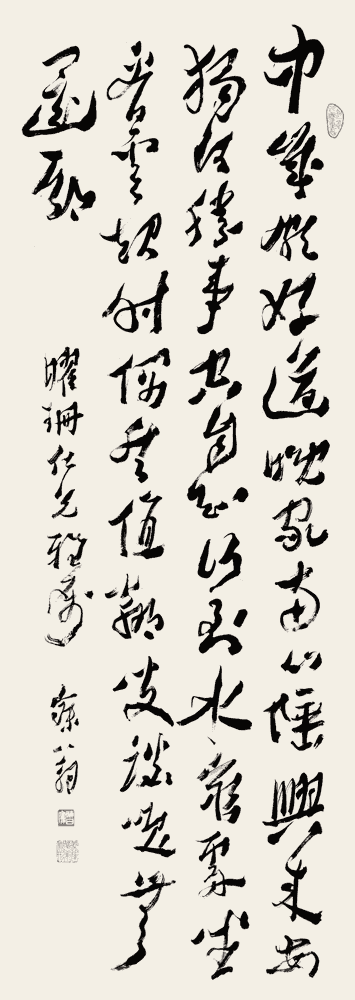 中歲頗好道晚家南山陲興來每
獨往勝事空自知行到水窮處坐
看雲起時偶然值鄰叟談笑無
還期
曜珊仁兄雅屬 寐翁